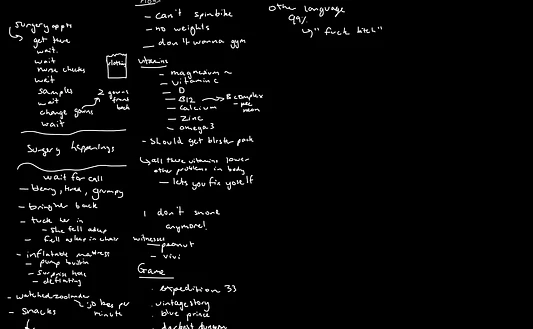 surgery appts
get there
wait.
wait
nurse checks
wait
samples
wait
change gowns
wait
clothes
2 gowns
front
back
surgery happenings
wait for call
- teary, tired, grumpy
- bring her back
- tuck her in
- she fell asleep
- fell asleep in chair
- inflatable mattress
- pump builtin
- surprise hole
- deflating
- watched zoolander
30 bes per
minute
- snacks
- can't spinbike
- no weights
- don't wanna gym
vitamins
- magnesium
- vitamin c
- D
- B12 → B complex
- calcium
- zinc
- omega 3
- should get blister pack
all these vitamins lower
other problems in body
- lets you fix yoself
I don't snore
anymore!
witnesses
- peanut
- vivi
Game
. expedition 33
. vintage story
. blue prince
. darkest dungeon
other language
99%
↳ "fuck bitch"